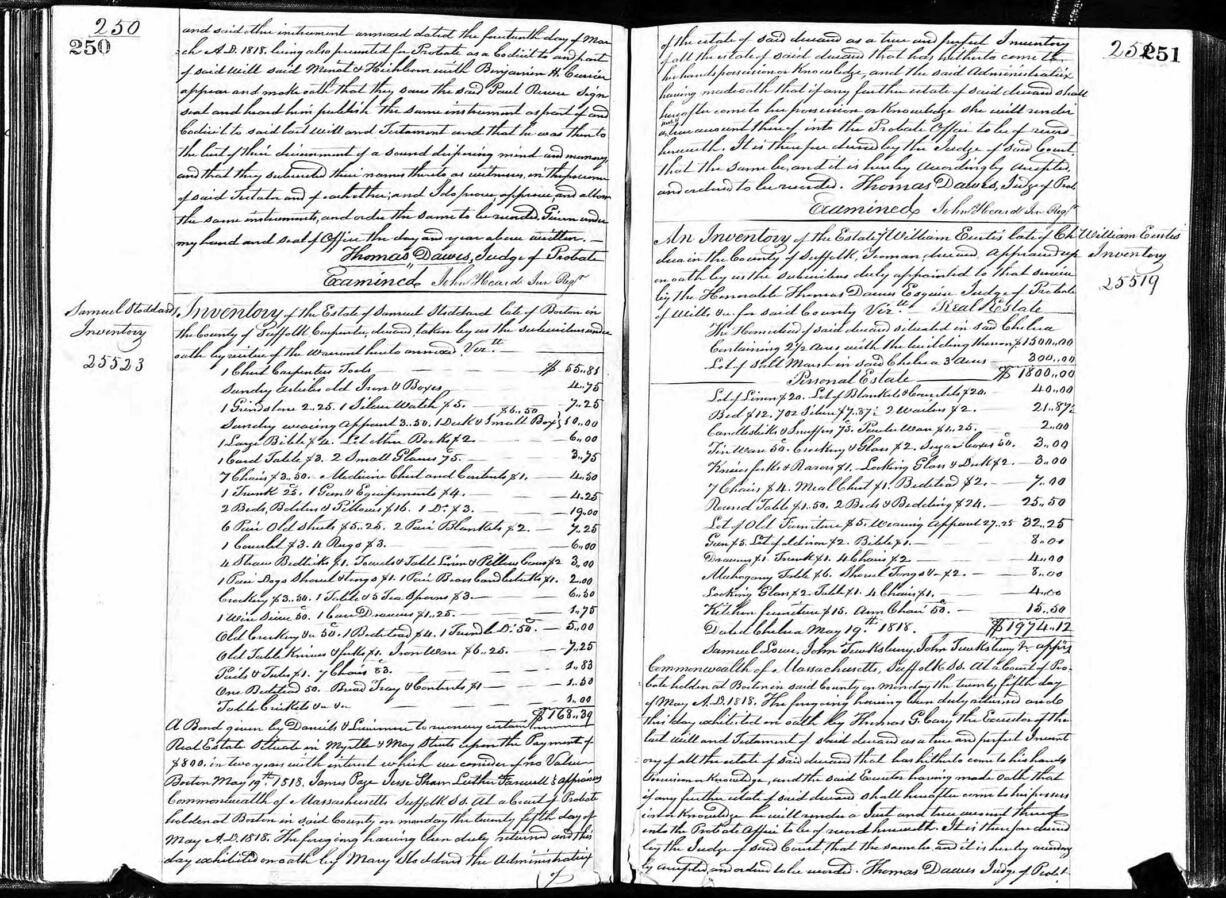 250
250
and said other instrument annexed dated the fourteenth day of Mar
ch A.D. 1818. being also presented for Probate as a Codicil to and part
of said Will said Minot & Hichborn with Benjamin H. Currier
appear and make oath that they saw the said Paul Revere sign
seal and heard him publish the same instrument as part of and
Codicil to said last Will and Testament and that he was then to
the best of their discernment of a sound disposing mind and memory
and that they subscribed their names thereto as witnesses, in the presence
of said Testator and of each other; and I do prove, approve, and allow
the same instruments, and order the same to be recorded. Given under
my hand and seal of Office the day and year above written.
Thomas Dawes, Judge of Probate
Examined John Heard Jun Regr
Samuel Stoddard
Inventory
25523
Inventory of the Estate of Samuel Stoddard late of Boston in
the County of Suffolk Carpenter, deceased, taken by us the subscribers under
oath by virtue of the Warrant hereto annexed Vizt.
1 Chest Carpenters Tools $ 55..81
Sundry articles old Iron & Boxes 4..75
1 Grindstone 2..25. 1 Silver Watch $5. 7..25
Sundry wearing Apparel 3..50. 1 Desk & Small Box $6..50 10..00
1 Large Bible $4. Lot other Books $2 6..00
1 Card Table $3. 2 Small Glasses 75. 3..75
7 Chairs $3..50. Medicine Chest and Contents $1. 4..50
1 Trunk 25. 1 Gun & Equipments $4. 4.25
2 Beds, Bolsters & Pillows $16. 1 Do. $3. 19.00
6 Pair Old Sheets $5..25. 2 Pair Blankets $2. 7.25
1 Coverlet $3. 4 Rugs $3. 6..00
4 Straw Bedticks $1. Towels & Table Linen & Pillow Cases $2 3..00
1 Pair Dogs Shovel & tongs $1. 1 Pair Brass Candlesticks $1. 2..00
Crockery $3..50. 1 Table & 5 Tea Spoons $3 6..50
1 Wire Sieve 50. 1 Case Drawers $1..25. 1..75
Old Crockery &c 50. 1 Bedstead $4. 1 Trundle Do. 50. 5..00
Old Table Knives & forks $1. Iron Ware $6..25. 7.25
Pails & Tubs $1. 7 Chairs 83. 1..83
One Bedstead 50. Bread Tray & Contents $1 1..50
Table Crickets &c &c 1..00
$168..39
A Bond given by Daniels & Livermore to reconvey certain
Real Estate Situate in Myrtle & May Streets upon the Payment of
$800. in two years with interest which we consider of no Value.
Boston May 19th. 1818. James Page Jesse Shaw Luther Farwell appraisers
Commonwealth of Massachusetts Suffolk SS. At a Court of Probate
holden at Boston in said County on monday the twenty fifth day of
May A.D. 1818. The foregoing having been duly returned and this
day exhibited on oath by Mary Stoddard the Administratrix
of
251
251
of the estate of said deceased as a true and perfect Inventory
of all the estate of said deceased that has hitherto come to
her hands possession or Knowledge, and the said Administratrix
having made oath that if any further estate of said deceased shall
hereafter come to her possession or Knowledge she will render
a just & true account thereof into the Probate Office to be of record
herewith. It is therefore decreed by the Judge of said Court
that the same be, and it is hereby accordingly accepted,
and ordered to be recorded. Thomas Dawes, Judge of Prob.
Examined John Heard Jun Regr
William Eustis
Inventory
25519
An Inventory of the Estate of William Eustis late of Ch
elsea in the County of Suffolk, Yeoman, deceased, Appraised up
on oath by us the subscribers duly appointed to that service
by the Honorable Thomas Dawes Esquire Judge of Probate
of Wills &c for said County Vizt. Real Estate
The Homestead of said deceased situated in said Chelsea
Containing 2 1/2 Acres with the building thereon $1500..00
Lot of Salt Marsh in said Chelsea 3 Acres 300..00
$ 1800..00
Personal Estate
Lot of Linen $20. Lot of Blankets & Coverlets $20. 40..00
Bed $12. 7 oz Silver $7.87 1/2 2 Waiters $2. 21..87 1/2
Candlesticks & Snuffers 75. Pewter Ware $1.25. 2..00
Tin Ware 50. Crockery & Glass $2. Sugar Boxes 50. 3..00
Knives forks & Razors $1. Looking Glass & Desk $2. 3..00
7 Chairs $4. Meal Chest $1. Bedstead $2. 7.00
Round Table $1.50. 2 Beds & Bedding $24. 25..50
Lot of Old Furniture $5. Wearing Apparel 27.25 32..25
Gun $5. Lot of 
 $2. Bible $1. 8..00
Drawers $1 Trunk $1. 4 Chairs $2 4..00
Mahogany Table $6. Shovel Tongs &c $2. 8..00
Looking Glass $2 Table $1. 4 Chairs $1. 4..00
Kitchen furniture $15. Arm Chair 50. 15..50
Dated Chelsea May 19th. 1818. $1974..12
Samuel Lowe, John Tewksbury, John Tewksbury Jr apprs
Commonwealth of Massachusetts, Suffolk SS. At a Court of Pro
bate holden at Boston in said County on Monday the twenty fifth day
of May A.D. 1818. The foregoing having been duly returned and
this day exhibited on oath by Thomas G. Cary the Executor of the
last will and Testament of said deceased as a true and perfect Invent
ory of all the estate of said deceased that has hitherto come to his hands
Possession or Knowledge, and the said Executor having made oath that
if any further estate of said deceased shall hereafter come to his possess
ion or Knowledge he will render a Just and true account thereof
into the Probate Office to be of record herewith. It is therefore decreed
by the Judge of said Court, that the same be, and it is hereby according
ly accepted, and ordered to be recorded. Thomas Dawes Judge of Probt.